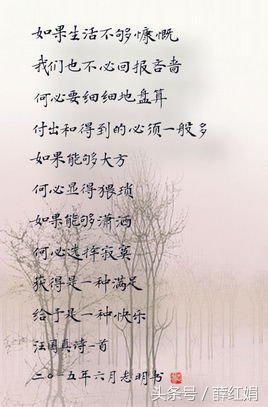 如果生活不够慷慨
我们也不必回报吝啬
何必要细细地盘算
付出和得到的必须一般多
如果能够大方
何必显得猥琐
如果能够潇洒
何必选择寂寞
获得是一种满足
给予是一种快乐
汪国真诗一首
二〇一五年六月老明书
头条号 / 薛红娟